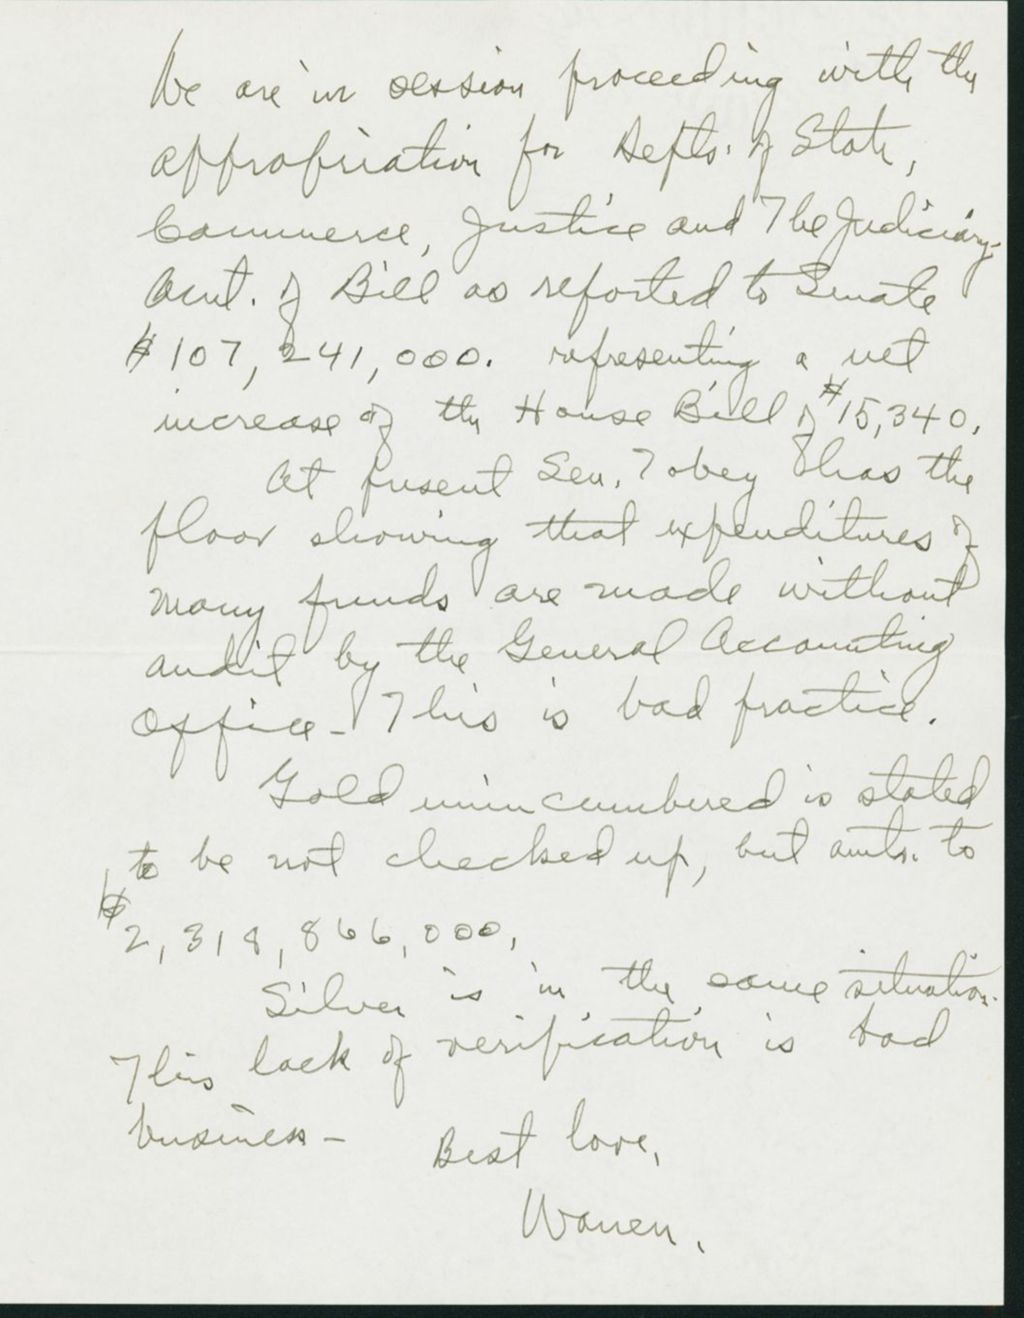 We are in session proceeding with the
appropriation for Depts. of State,
Commerce, Justice and The Judiciary.
Amt. of Bill as reported to Senate
$107,241,000. representing a net
increase of the House Bill of $15,340.
At present Sen. Tobey has the
floor showing that expenditures of
many funds are made without
audit by the General Accounting
Office - This is bad practice.
Gold unincumbered is stated
to be not checked up, but amts. to
$2,318,866,000,
Silver is in the same situation.
This lack of verification is bad
business -
Best love,
Warren.